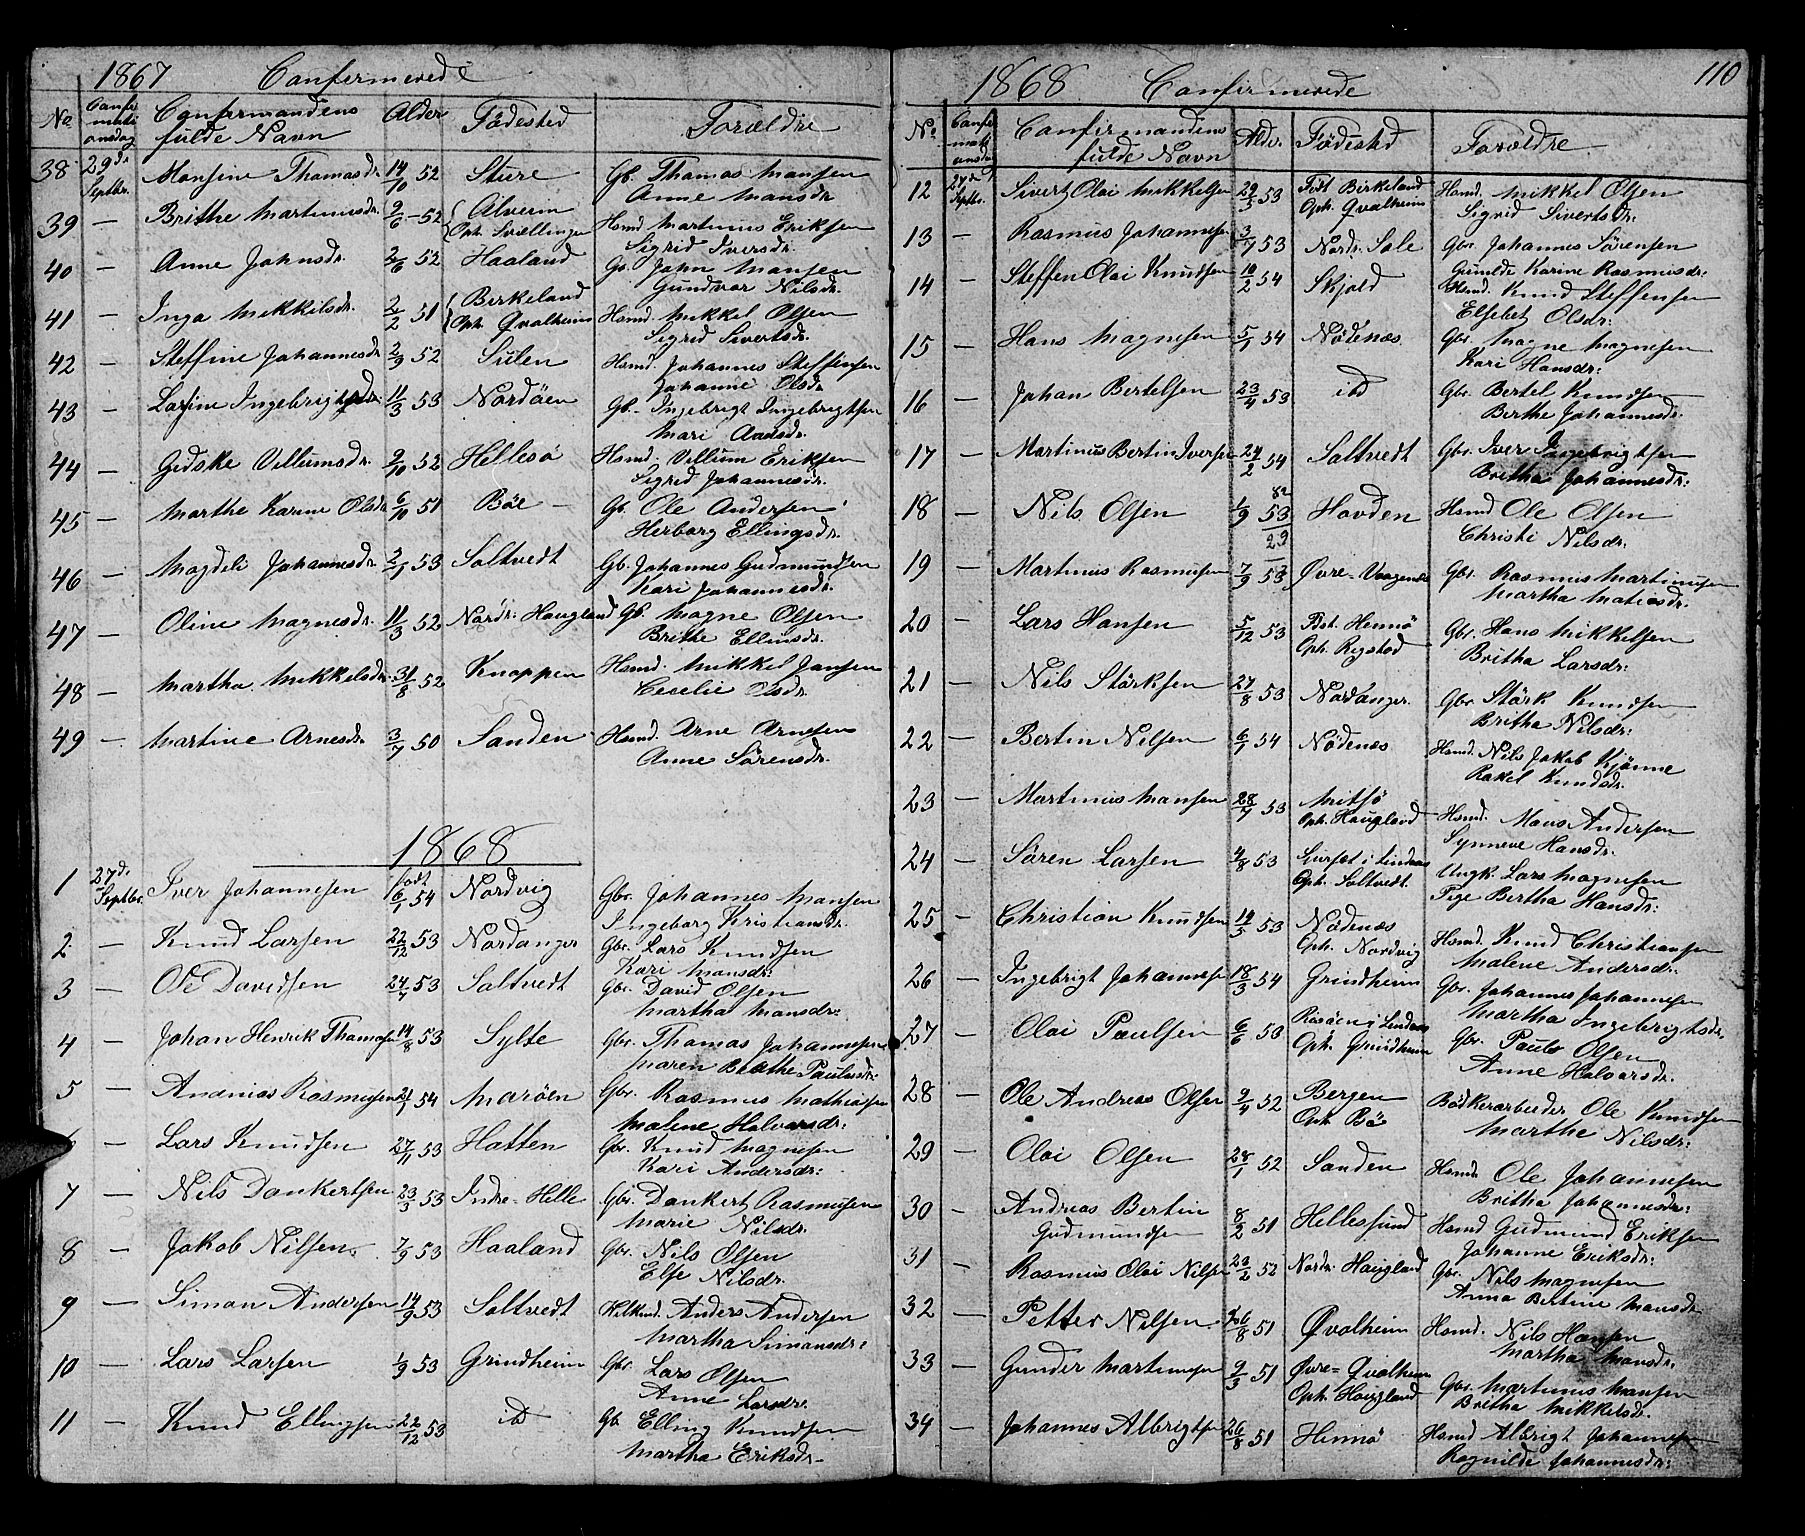 1867 Confirmerede
No Confirmationsdag Confirmandens fulde Navn Alder Fødested Forældre
38 29de Septbr. Monsine Thomasdr. 14/10 52 Sture Gb. Thomas Monsen
Anne Monsdr
39 — Brithe Martinusdr. 9/6 - 52 Alverin Hsmd Martinus Eriksen
Oph. Sællinger Sigrid Iversdr.
40 — Anne Johnsdr. 2/6 52 Haaland Gb. John Monsen
Gundvor Nilsdr.
41 — Inga Mikkelsdr. 2/2 51 Birkeland Hsmd. Mikkel Olsen
Oph. Qvalheim Sigrid Sivertsdr.
42 — Steffine Johannesdr 2/9 52 Sulen Hsmd. Johannes Steffensen
Johanne Olsdr
43 — Larsine Ingebrigtsdr. 11/3 53 Nordöen Gb. Ingebrigt Ingebrigtsen
Mari Andsdr.
44 — Gidske Villumsdr. 9/10 52 Hellesö Hsmd. Villum Eriksen
Sigrid Johannesdr.
45 — Marthe Karine Olsdr 6/10 51 Böe — Gb. Ole Andersen
Herborg Ellingsdr.
46 — Magdeli Johannesdr. 2/1 53 Saltvedt Gb. Johannes Gudmundsen
Kari Johannesdr.
47 — Oline Magnesdr. 11/3 52 Nordr. Haugland Gb. Magne Olsen
Brithe Ellinsdr.
48 — Martha Mikkelsdr. 31/8 52 Knappen Hsmd. Mikkel Jansen
Cecelie Olsdr.
49 — Martine Arnesdr. 3/7 50 Sanden Hsmd. Arne Arnesen
Anne Sörensdr.
1868
1 27de Septbr. Iver Johannesen født 6/1 54 Nordvig Gbr. Johannes Monsen
Ingeborg Kristiansdr.
2 — Knud Larsen 22/12 53 Nordanger Gbr. Lars Knudsen
Kari Monsdr:
3 — Ole Davidsen 24/7 53 Saltvedt Gbr. David Olsen
Martha Monsdr:
4 — Johan Henrik Thomasen 14/8 53 Sylte Gbr. Thomas Johannesen
Maren Birthe Paulsdr:
5 — Ananias Rasmusen 21/1 54 Maröen Gbr. Rasmus Mathiasen
Malene Halvorsdr:
6 — Lars Knudsen 27/11 53 Hatten Gbr. Knud Magnesen
Kari Andersdr:
7 — Nils Dankertsen 23/3 53 Indre-Helle Gbr. Dankert Rasmusen
Marie Nilsdr.
8 — Jakob Nilsen 7/9 53 Haaland Gbr. Nils Olsen
Else Nilsdr.
9 — Simon Andersen 14/9 53 Saltvedt Anders Andersen
Martha Simonsdr:
10 — Lars Larsen 1/9 53 Grindheim Gbr. Lars Olsen
Anne Larsdr.
11 — Knud Ellingsen 22/12 53 id Gb. Elling Knudsen
Martha Eriksdr.
1868 Confirmerede 110
No Confirmationsdag Confirmandens fulde Navn Aldr. Fødested Forældre
12 27de Septbr. Sivert Olai Mikkelsen 29/5 53 Födt Birkeland Hsmd. Mikkel Olsen
Oph. Qvalheim Sigrid Sivertsdr:
13 — Rasmus Johannesen 3/7 53 Nordr. Sole Gbr. Johannes Sörensen
Gunilde Karine Rasmusdr:
14 — Steffen Olai Knudsen 10/2 54 Skjold Hsmd. Knud Steffensen
Elsebet Olsdr:
15 — Hans Magnesen 5/1 54 Nödenæs Gbr. Magne Magnesen
Kari Hansdr:
16 — Johan Bertelsen 23/4 53 id Gbr. Bertel Knudsen
Berthe Johannesdr.
17 — Martinus Bertin Iversen 24/2 54 Saltvedt Gbr. Iver Ingebrigtsen
Britha Johannesdr:
18 — Nils Olsen 1/9 53 Hovden Hsmd Ole Olsen
82
29
Christi Nilsdr:
19 — Martinus Rasmusen 7/9 53 Øvre-Vaagenæs Gbr. Rasmus Martinusen
Martha Matiasdr.
20 — Lars Hansen 5/12 53 Födt. Hennö Gbr. Hans Mikkelsen
Oph. Rigstad Britha Larsdr:
21 — Nils Störksen 27/8 53 Nordanger. Gbr. Störk Knudsen
Britha Nilsdr:
22 — Bertin Nilsen 6/1 54 Nödenæs Hsmd. Nils Jakob Kjönne
Rakel Knudsdr.
23 — Martinus Monsen 28/7 53 Mitsö Hsmd. Mons Andersen
Oph. Haugland Synneve Hansdr.
24 — Sören Larsen 4/8 53 i Lindaas Ungk. Lars Magnesen
Oph. Saltvedt. Pige Bertha Hansdr:
25 — Christian Knudsen 14/5 53 Nödenæs Hsmd. Knud Christiansen
Oph. Nordvig Malene Andersdr.
26 — Ingebrigt Johannesen 18/3 54 Grindheim Gbr. Johannes Johannesen
Martha Ingebrigtsdr.
27 — Olai Paulsen 6/6 53 Risöen i Lindaas Gbr. Paul Olsen
Oph. Grindheim Anne Halvorsdr.
28 — Ole Andreas Olsen 9/4 52 Bergen Bödkerarbeider Ole Knudsen
Oph. Bö Marthe Nilsdr:
29 — Olai Olsen 28/1 52 Sanden Hsmd. Ole Johannesen
Britha Johannesdr:
30 — Andreas Bertin 8/2 51 Hellesund Hsmd Gudmund Eriksen
Gudmundsen Johanne Eriksdr:
31 — Rasmus Olai Nilsen 23/2 52 Nordr. Haugland Gbr. Nils Magnesen
Anna Bertine Monsdr
32 — Petter Nilsen 26/8 51 Qvalheim Hsmd. Nils Hansen
Martha Monsdr.
33 — Gunder Martinusen 9/3 51 Øvre-Qvalheim Gbr. Martinus Monsen
Oph. Haugland Britha Mikkelsdr.
34 — Johannes Albrigtsen 26/8 51 Hennö Hsmd Albrigt Johannesen
Ragnilde Johannesdr: